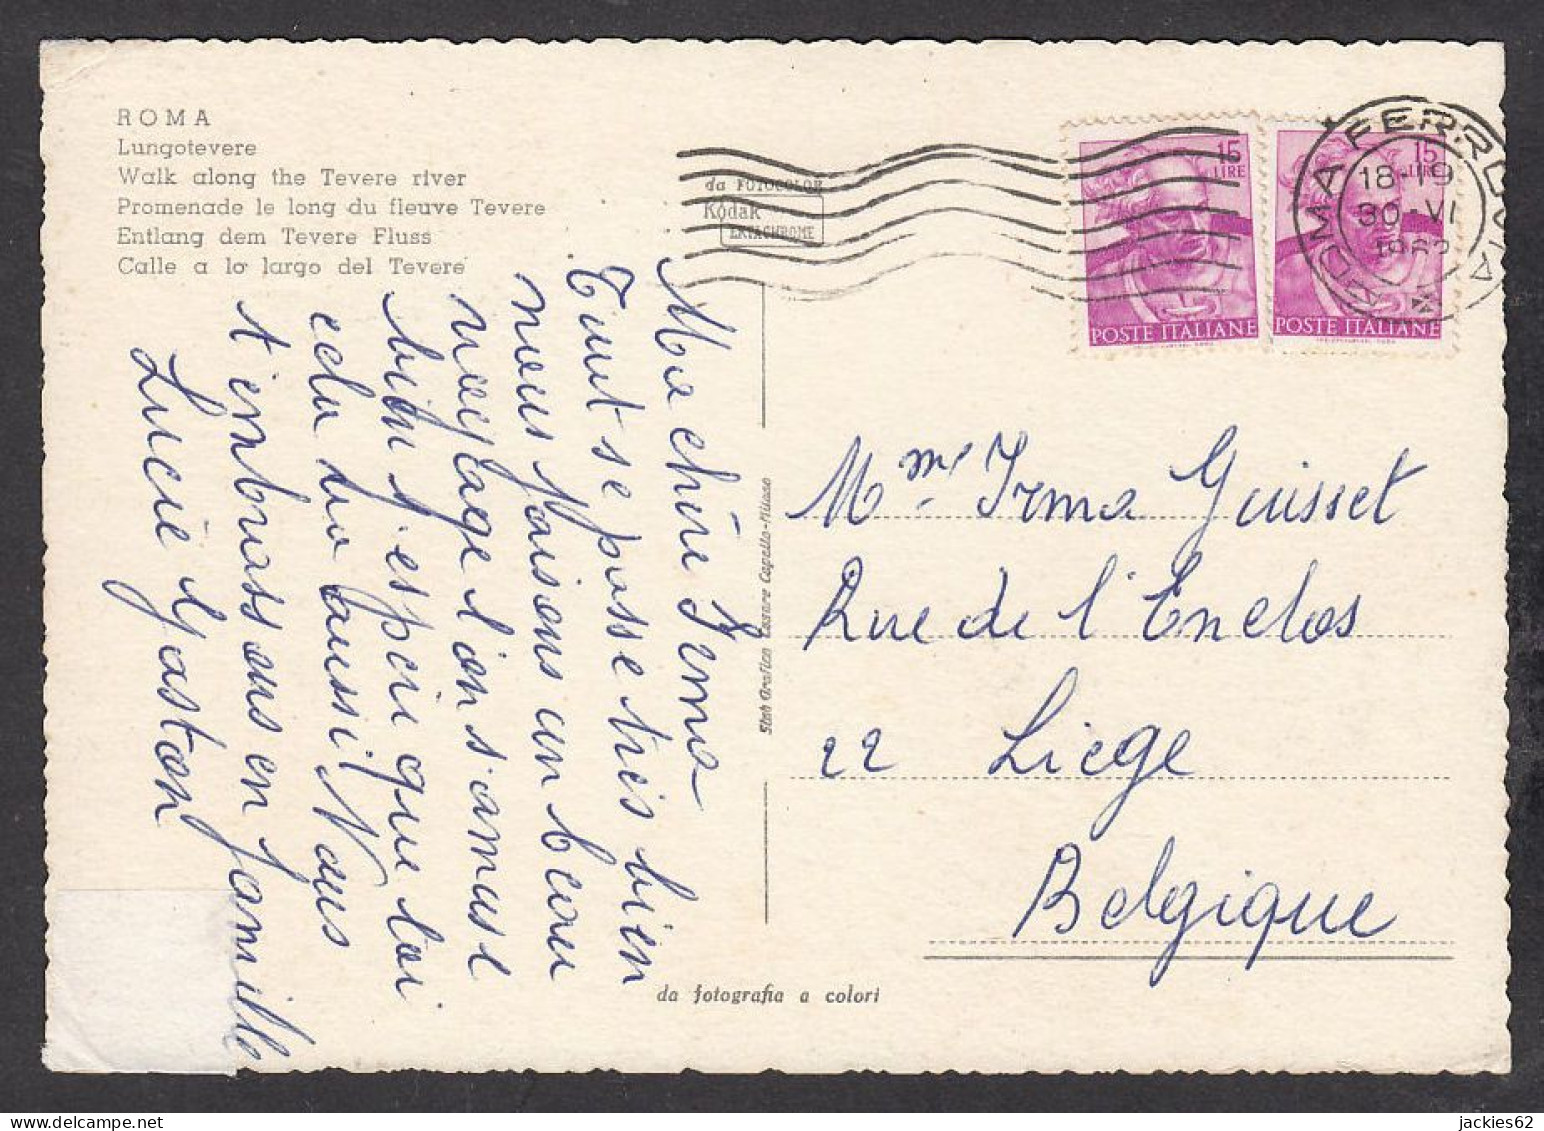 ROMA
Lungotevere
Walk along the Tevere river
Promenade le long du fleuve Tevere
Entlang dem Tevere Fluss
Calle a lo largo del Tevere
da FOTOCOLOR
Kodak
EKTACHROME
15
LIRE
POSTE ITALIANE
15
LIRE
POSTE ITALIANE
ROMA FERROVIA
18-19
30 VI
Ma chère Irma
Tout se passe très bien
nous faisons un beau
voyage l'on s'amuse
bien j'espère que toi
cela va aussi. Nous
t'embrassons en famille
Lucie Gaston
Stab Grafico Cesare Capello-Milano
Mme Irma Guisset
Rue de l'Enclos
22 Liege
Belgique
da fotografia a colori
jackies62